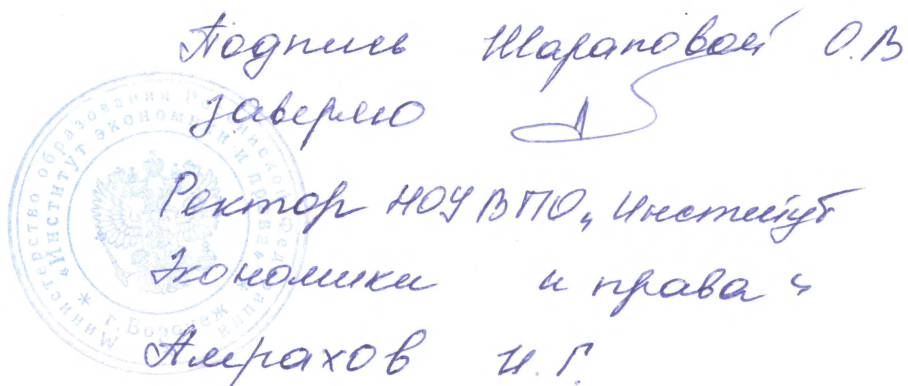 Подпись Шараповой О.В
заверяю
Ректор НОУ ВПО „Институт
Экономики и права“
Амрахов И.Г.
Министерство образования Российской Федерации
«Институт экономики и права»
* г. Воронеж *